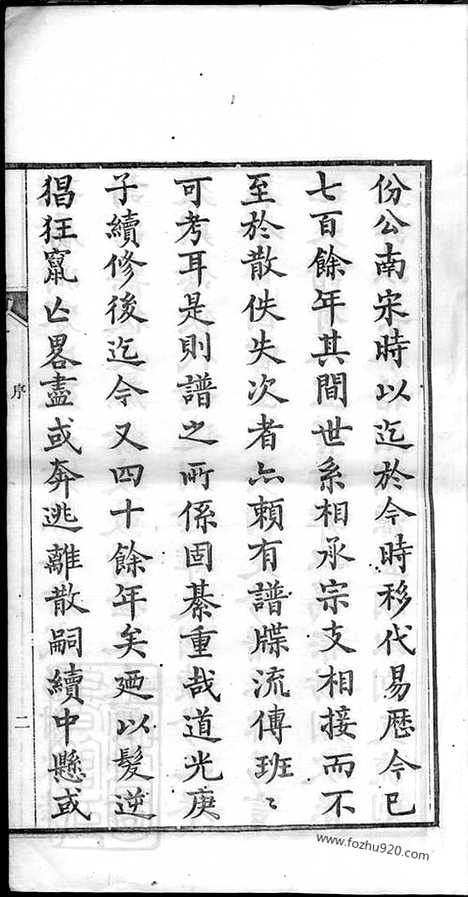 份公南宋時以迄於今時移代易歷今已
七百餘年其間世系相承宗支相接而不
至於散佚失次者亦賴有譜牒流傳班〻
可考耳是則譜之所係固綦重哉道光庚
子續修後迄今又四十餘年矣廼以髮逆
猖狂竄亡畧盡或奔逃離散嗣續中懸或
序
二
www.fozhu920.com